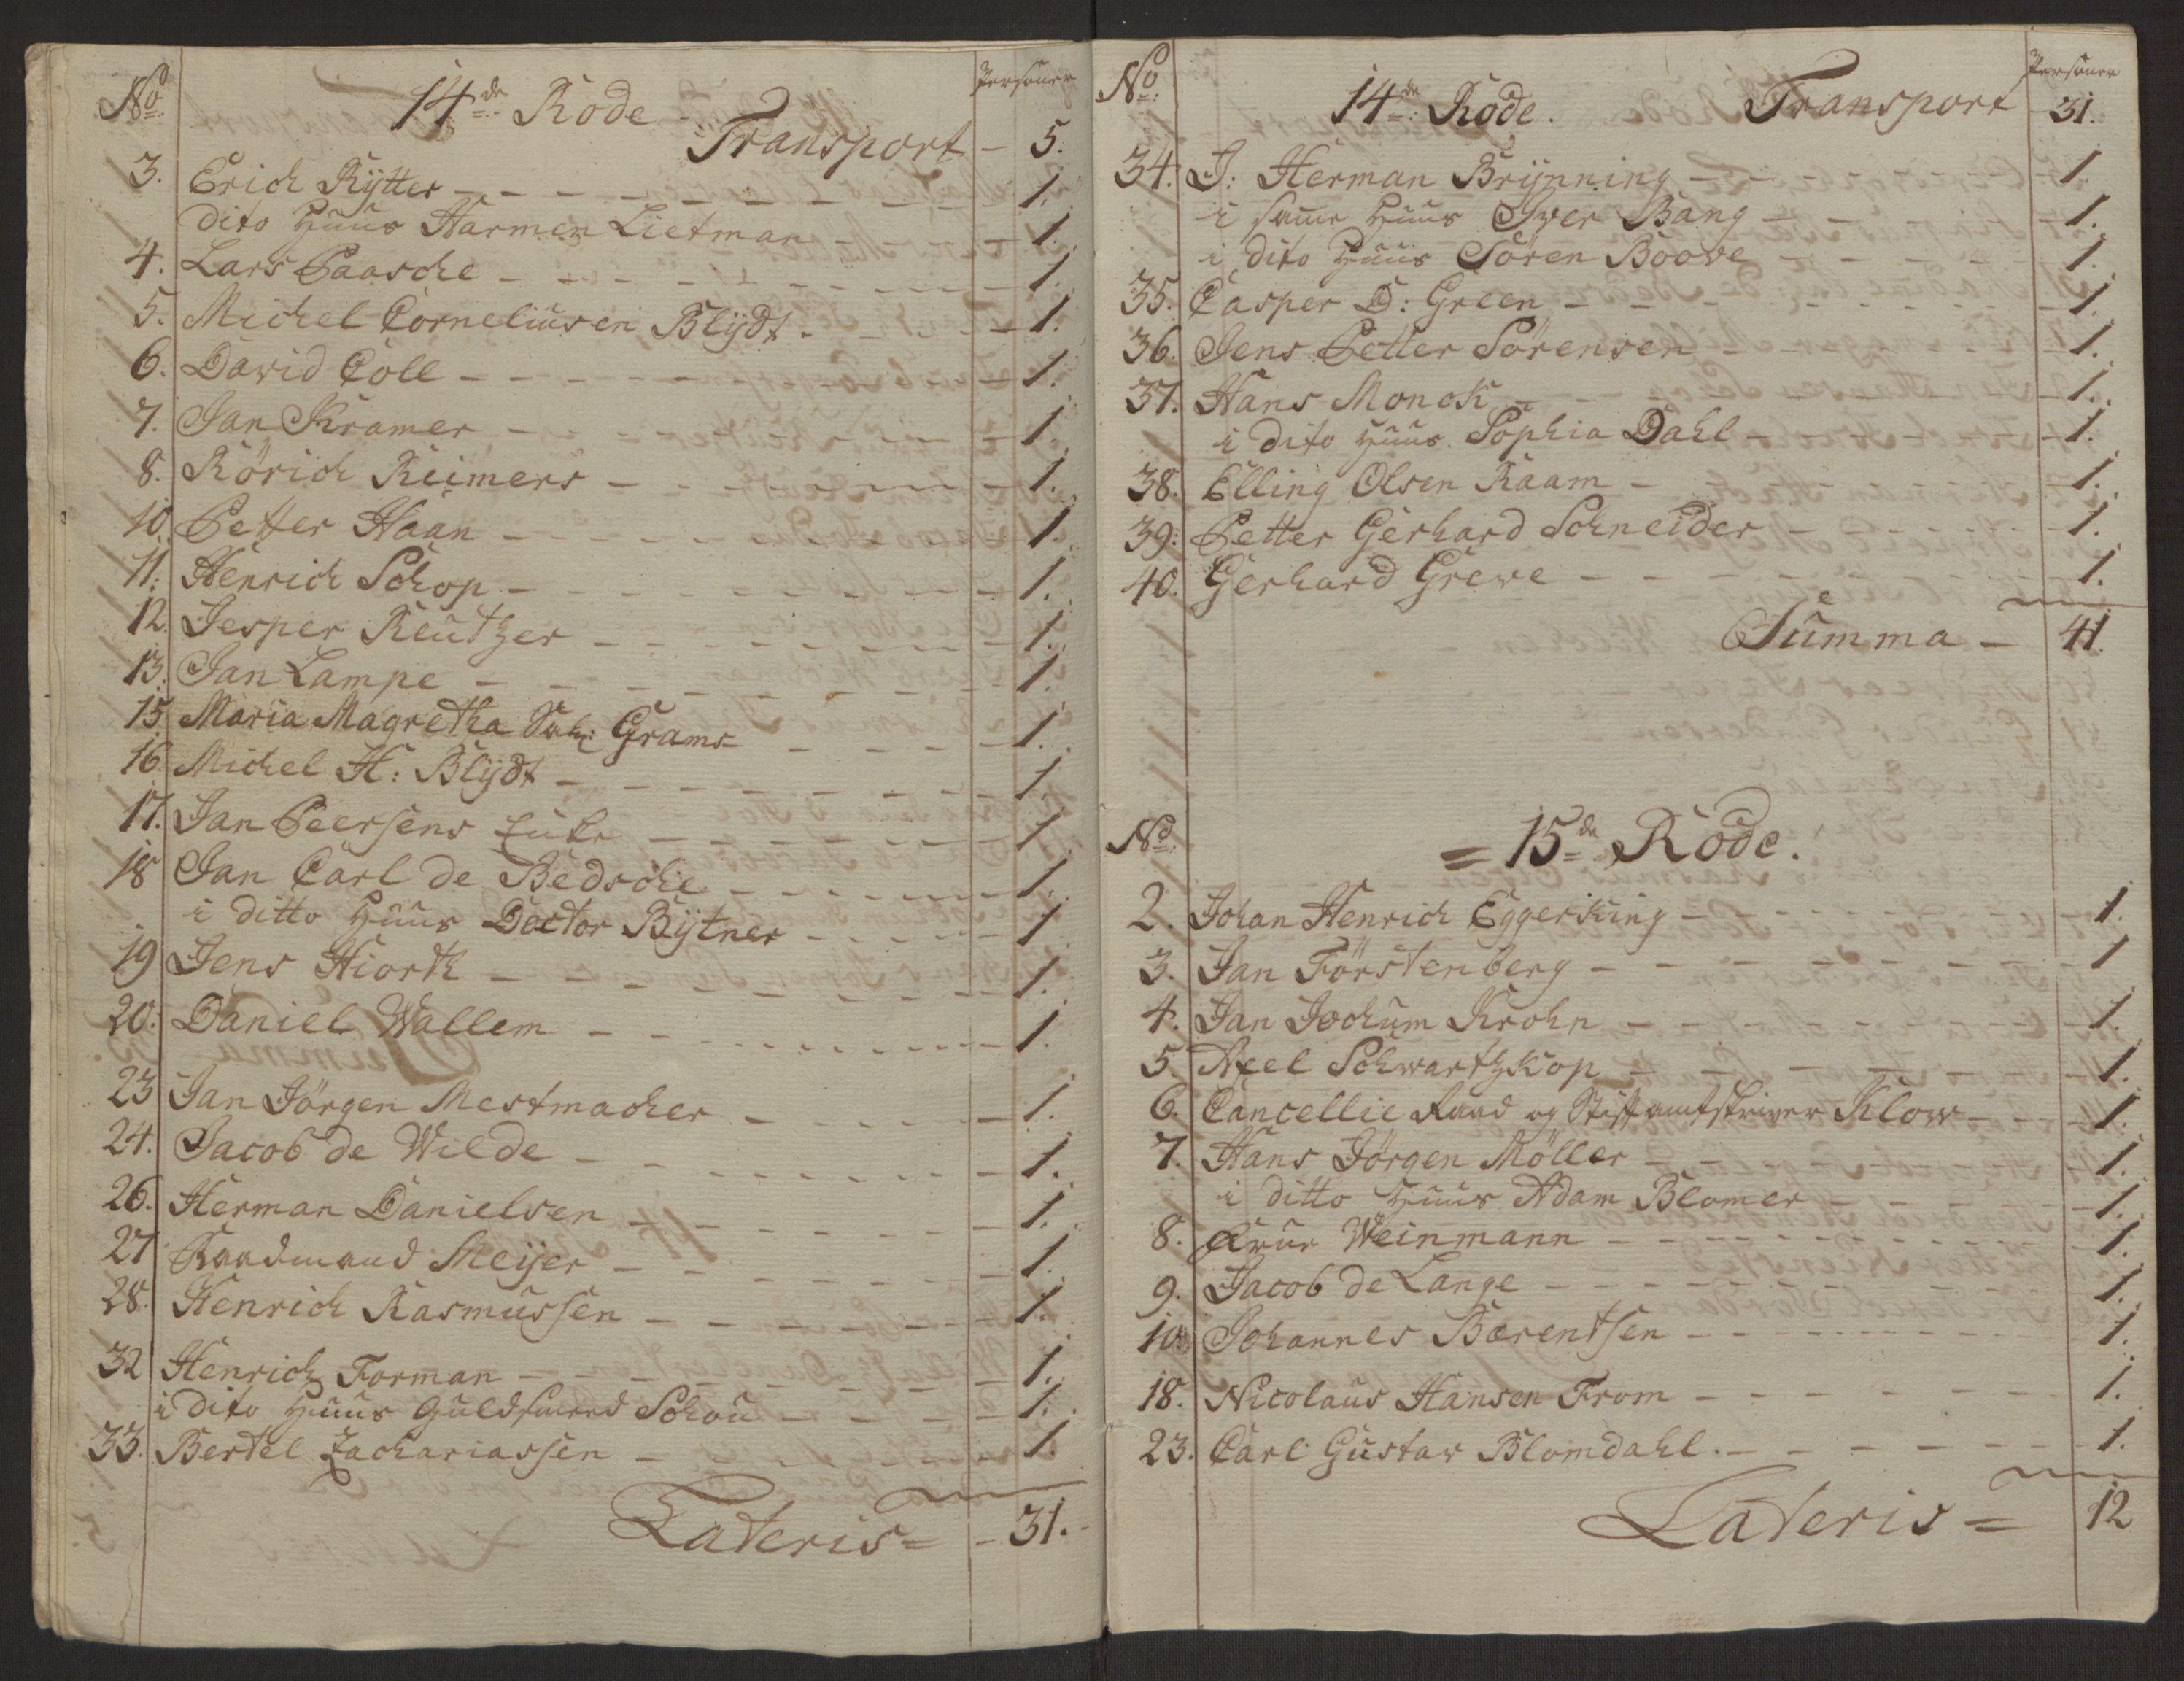 No. 14de Rode Personer
Transport - 5.
3. Erich Rytter - 1.
dito Huus Harmen Lietman - 1.
4. Lars Paasche - 1.
5. Michel Corneliusen Blijdt - 1.
6. David Coll - 1.
7. Jan Kramer - 1
8. Rörich Reimers - 1.
10 Petter Haan - 1.
11. Henrich Schop - 1.
12. Jesper Reutzer - 1.
13. Jan Lampe - 1.
15 Maria Magretha Sal: Grams - 1.
16. Michel H: Blijdt - 1.
17. Jan Peersens Enke - 1.
18 Jan Carl de Bedsche - 1.
i ditto Huus Doctor Bÿtner - 1
19 Jens Hiorth - 1.
20. Daniel Wallem - 1.
23 Jan Jörgen Mestmacher - 1.
24. Jacob de Wilde - 1.
26. Herman Danielsen - 1.
27 Raadmand Meijer - 1.
28. Henrich Rasmussen - 1.
32 Henrich Forman - 1.
i dito Huus Guldsmed Schou - 1.
33. Bertel Zachariassen - 1.
Lateris = - 31.
No. 14de Rode. Transport Personer 31.
34. J: Herman Brÿnning - 1.
i samme Huus Iver Bang - 1.
i dito Huus Sören Boove - 1.
35. Casper D: Green - 1.
36. Jens Petter Sörensen - 1.
37. Hans Monck - 1.
i dito Huus Sophia Dahl - 1.
38. Elling Olsen Raam - 1.
39. Petter Gerhard Schneider - 1.
40. Gerhard Grewe - 1.
Summa - 41.
No. = 15de Rode.
2. Johan Henrich Eggerking - 1.
3. Jan Förstenberg - 1
4. Jan Jochum Krohn - 1.
5. Axel Schwartzkop - 1.
6. Cancellie Raad og Stiftamtskriver Klow - 1.
7. Hans Jörgen Möller - 1.
i ditto Huus Adam Blomer - 1.
8. Frue Weinmann - 1.
9. Jacob de Lange - 1.
10. Johannes Bærentsen - 1.
18. Nicolaus Hansen From - 1.
23. Carl Gustav Blomdahl. - 1.
Lateris = 12